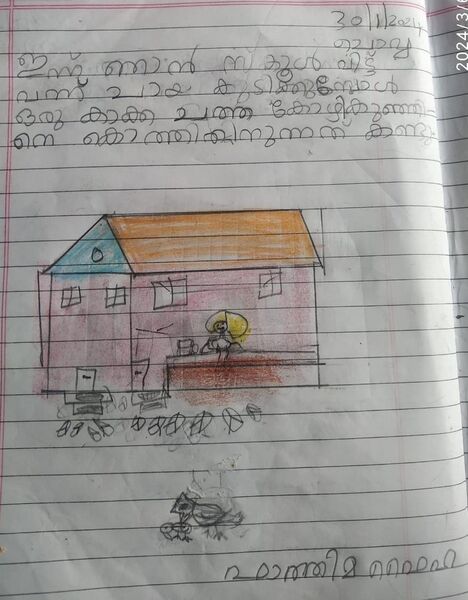 30/1/2024
ചൊവ്വ
ഇന്ന് ഞാൻ സ്കൂൾ വിട്ട്
വന്ന് ചായ കുടിക്കുമ്പോൾ
ഒരു കാക്ക ചത്ത കോഴികുഞ്ഞി
നെ കൊത്തിതിന്നുന്നത് കണ്ടു
ഫാത്തിമ